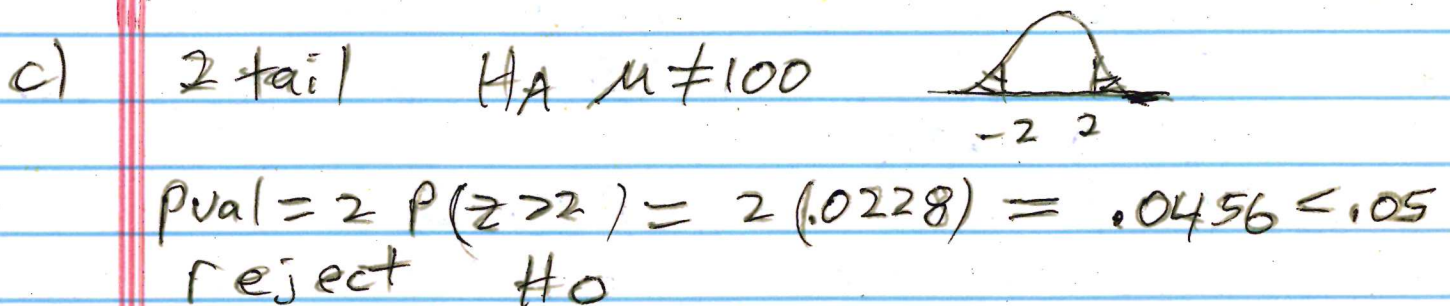 c) 2 tail HA μ≠100
-2 2
pval = 2 P(z>2) = 2(.0228) = .0456 < .05
reject H0